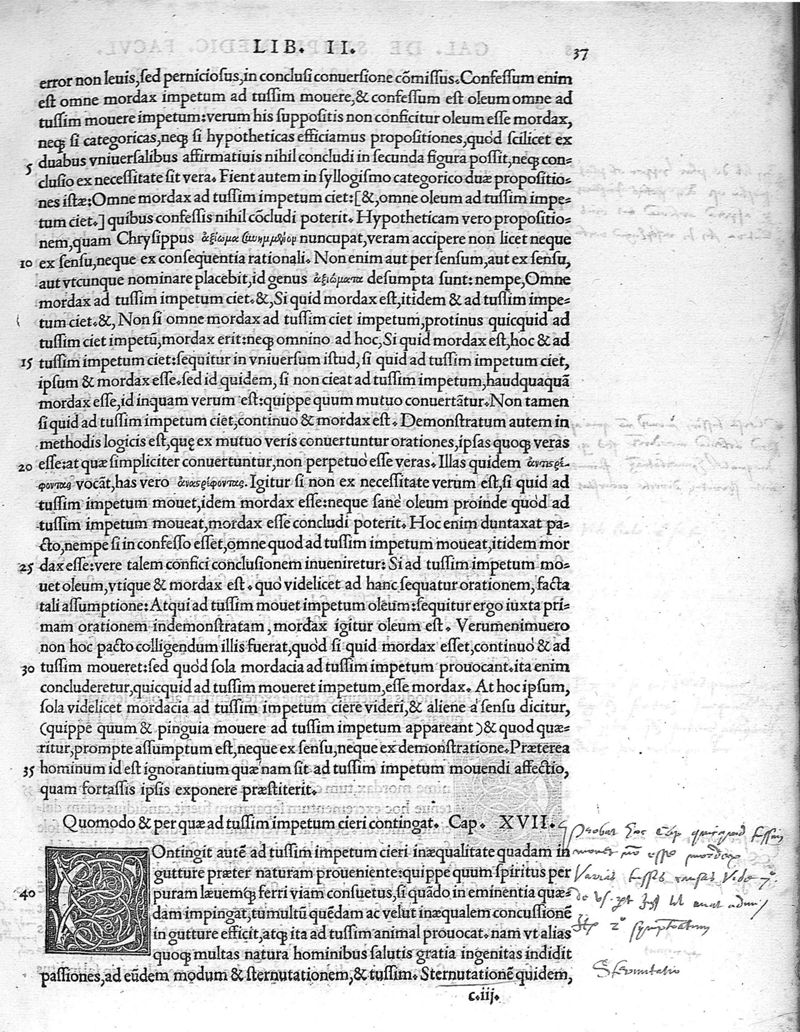 LIB. II. 37
error non leuis, sed perniciosus, in conclusi conuersione cōmissus. Confessum enim
est omne mordax impetum ad tussim mouere, & confessum est oleum omne ad
tussim mouere impetum: verum his suppositis non conficitur oleum esse mordax,
neq; si categoricas, neq; si hypotheticas efficiamus propositiones, quòd scilicet ex
5 duabus vniuersalibus affirmatiuis nihil concludi in secunda figura possit, neq; con=
clusio ex necessitate sit vera. Fient autem in syllogismo categorico duæ propositio=
nes istæ: Omne mordax ad tussim impetum ciet: [&, omne oleum ad tussim impe=
tum ciet.] quibus confessis nihil cōcludi poterit. Hypotheticam vero propositio=
nem, quam Chrysippus ἀξίωμα συνημμένον nuncupat, veram accipere non licet neque
10 ex sensu, neque ex consequentia rationali. Non enim aut per sensum, aut ex sensu,
aut vtcunque nominare placebit, id genus ἀξιώματα desumpta sunt: nempe, Omne
mordax ad tussim impetum ciet. &, Si quid mordax est, itidem & ad tussim impe=
tum ciet. &, Non si omne mordax ad tussim ciet impetum, protinus quicquid ad
tussim ciet impetū, mordax erit: neq; omnino ad hoc, Si quid mordax est, hoc & ad
15 tussim impetum ciet: sequitur in vniuersum istud, si quid ad tussim impetum ciet,
ipsum & mordax esse. sed id quidem, si non cieat ad tussim impetum, haudquaquā
mordax esse, id inquam verum est: quippe quum mutuo conuertātur. Non tamen
si quid ad tussim impetum ciet, continuo & mordax est. Demonstratum autem in
methodis logicis est, quę ex mutuo veris conuertuntur orationes, ipsas quoq; veras
20 esse: at quæ simpliciter conuertuntur, non perpetuò esse veras. Illas quidem ἀντιστρέ-
φοντας vocāt, has vero ἀναστρέφοντας. Igitur si non ex necessitate verum est, si quid ad
tussim impetum mouet, idem mordax esse: neque sanè oleum proinde quòd ad
tussim impetum moueat, mordax esse concludi poterit. Hoc enim duntaxat pa=
cto, nempe si in confesso esset, omne quod ad tussim impetum moueat, itidem mor
25 dax esse: vere talem confici conclusionem inueniretur: Si ad tussim impetum mo=
uet oleum, vtique & mordax est. quò videlicet ad hanc sequatur orationem, facta
tali assumptione: Atqui ad tussim mouet impetum oleum: sequitur ergo iuxta pri=
mam orationem indemonstratam, mordax igitur oleum est. Verumenimuero
non hoc pacto colligendum illis fuerat, quòd si quid mordax esset, continuò & ad
30 tussim moueret: sed quòd sola mordacia ad tussim impetum prouocant. ita enim
concluderetur, quicquid ad tussim moueret impetum, esse mordax. At hoc ipsum,
sola videlicet mordacia ad tussim impetum ciere videri, & aliene a sensu dicitur,
(quippe quum & pinguia mouere ad tussim impetum appareant) & quod quæ=
ritur, prompte assumptum est, neque ex sensu, neque ex demonstratione. Præterea
35 hominum id est ignorantium quæ nam sit ad tussim impetum mouendi affectio,
quam fortassis ipsis exponere præstiterit.
Quomodo & per quæ ad tussim impetum cieri contingat. Cap. XVII.
COntingit autē ad tussim impetum cieri inæqualitate quadam in
gutture præter naturam proueniente: quippe quum spiritus per
40 puram læuemq; ferri viam consuetus, si quādo in eminentia quæ=
dam impingat, tumultū quēdam ac velut inæqualem concussionē
in gutture efficit, atq; ita ad tussim animal prouocat. nam vt alias
quoq; multas natura hominibus salutis gratia ingenitas indidit
passiones, ad eūdem modum & sternutationem, & tussim. Sternutationē quidem,
c. iij.
Probat hoc Cap quicquid tussim
mouet non esse mordax
Sternutatio